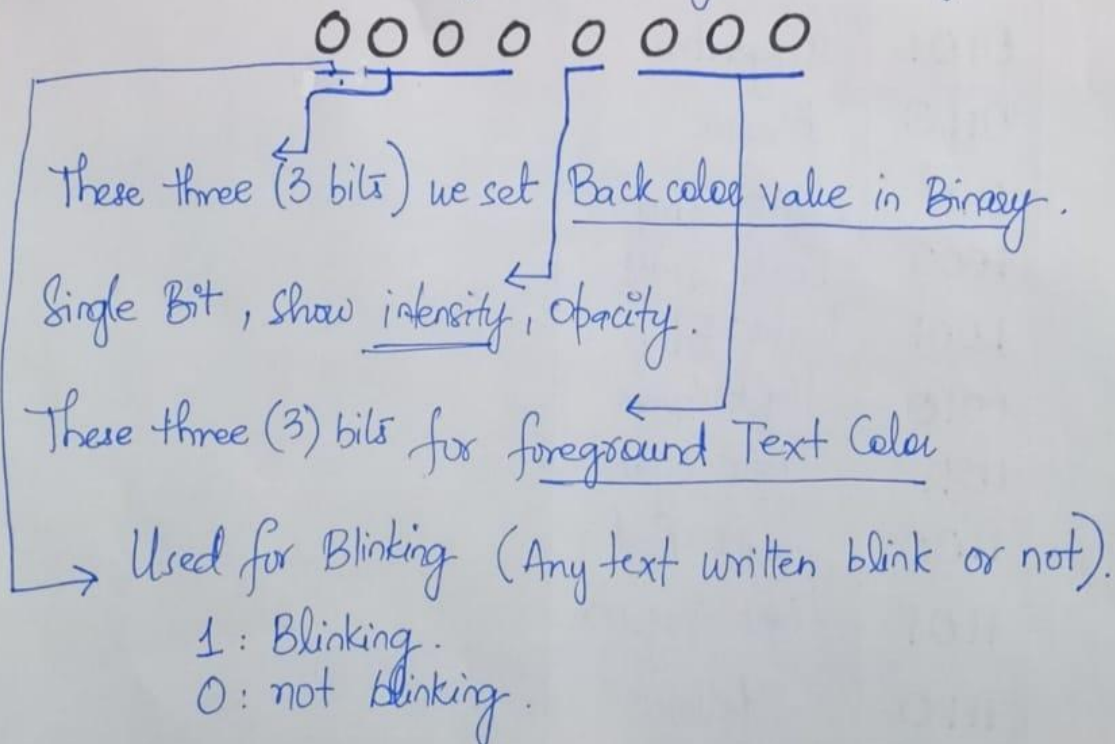 0 0 0 0 0 0 0 0
These three (3 bits) we set Back color value in Binary.
Single Bit, show intensity, Opacity.
These three (3) bits for foreground Text Color
Used for Blinking (Any text written blink or not).
1: Blinking.
0: not blinking.